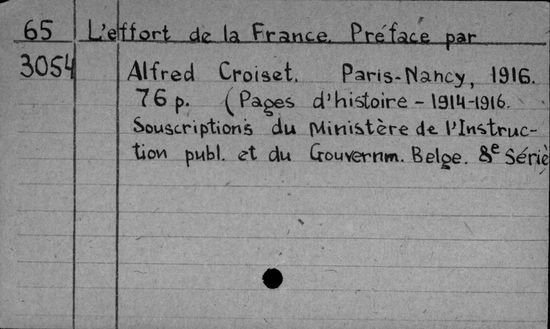 65 L'effort de la France. Préface par
3054 Alfred Croiset. Paris-Nancy, 1916.
76 p. (Pages d'histoire - 1914-1916.
Souscriptions du Ministère de l'Instruc-
tion publ. et du Gouvernm. Belge. 8e Série